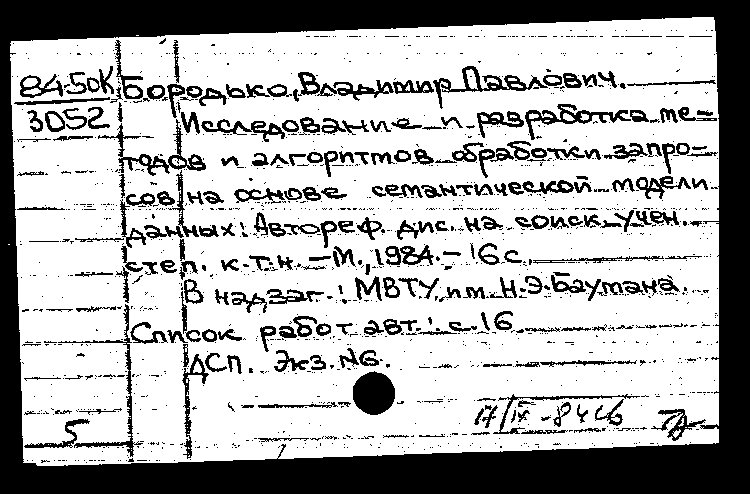 84-5ДК Бородько, Владимир Павлович.
3052
Исследование и разработка ме-
тодов и алгоритмов обработки запро-
сов на основе семантической модели
данных: Автореф. дис. на соиск. учен.
степ. к.т.н. — М., 1984. — 16 с.
В надзаг.: МВТУ им. Н.Э. Баумана.
Список работ авт.: с. 16
ДСП. Экз. №6.
17/IX-84
5